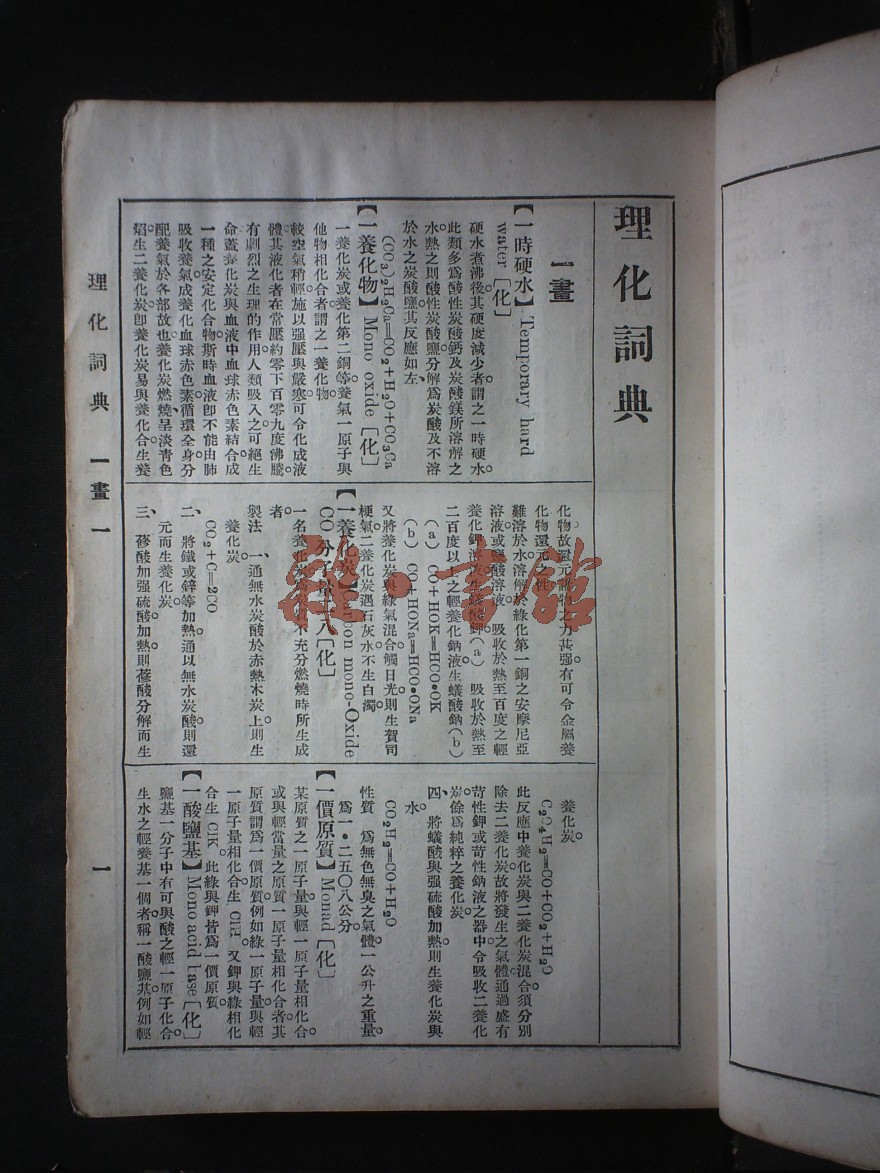 理化詞典
一畫
【一時硬水】Temporary hard
water〔化〕
硬水煮沸後其硬度減少者謂之一時硬水。
此類多爲酸性炭酸鈣及炭酸鎂所溶解之
水熱之則酸性炭酸鹽分解爲炭酸及不溶
於水之炭酸鹽其反應如左、
(CO₃)₂H₂Ca=CO₂+H₂O+CO₃Ca
【一養化物】Mono oxide〔化〕
一養化炭或養化第二銅等養氣一原子與
他物相化合者謂之一養化物。
較空氣稍輕施以强壓與嚴寒可令化成液
體其液化者在常壓約零下百零九度佛騰。
有劇烈之生理的作用人類吸入之可絕生
命蓋養化炭與血液中血球赤色素結合成
一種之安定化合物斯時血液卽不能由肺
吸收養氣成養化血球赤色素循環全身分
配養氣於各部故也。養化炭燃燒、呈淡青色
焰生二養化炭。卽養化炭易與養化合生養
化物故還元諸物之力甚强有可令金屬養
化物還元之性。
難溶於水溶解於綠化第一銅之安摩尼亞
溶液或鹽酸溶液。吸收於熱至百度之輕
養化鉀溶液生蟻酸鉀(a) 吸收於熱至
二百度以上之輕養化鈉液生蟻酸鈉(b)
(a) CO+HOK=HCO•OK
(b) CO+HONa=HCO•ONa
又將養化炭與綠氣混合觸日光則生賀司
梗氣。二養化炭遇石灰水不生白濁。
【一養化炭】Carbon mono-Oxide
CO分子量二八〔化〕
一名養化炭爲炭質不充分燃燒時所生成
者。
製法 一、通無水炭酸於赤熱木炭上則生
養化炭。
CO₂+C=2CO
二、將鐵或鋅等加熱通以無水炭酸則還
元而生養化炭。
三、蓚酸加强硫酸加熱則蓚酸分解而生
養化炭。
C₂O₄H₂=CO+CO₂+H₂O
此反應中養化炭與二養化炭混合須分別
除去二養化炭故將發生之氣體通過盛有
苛性鉀或苛性鈉液之器中令吸收二養化
炭餘爲純粹之養化炭。
四、將蟻酸與强硫酸加熱則生養化炭與
水。
CO₂H₂=CO+H₂O
性質 爲無色無臭之氣體一公升之重量
爲一・二五〇八公分。
【一價原質】Monad〔化〕
某原質之一原子量與輕一原子量相化合
或與輕當量之原質一原子量相化合者其
原質謂爲一價原質例如綠一原子量與輕
一原子量相化合生ClH。又鉀與綠相化
合生ClK。此綠與鉀皆爲一價原質。
【一酸鹽基】Mono acid base〔化〕
鹽基一分子中有可與酸之輕一原子化合
生水之輕養基一個者稱一酸鹽基例如輕
理化詞典 一畫 一
一